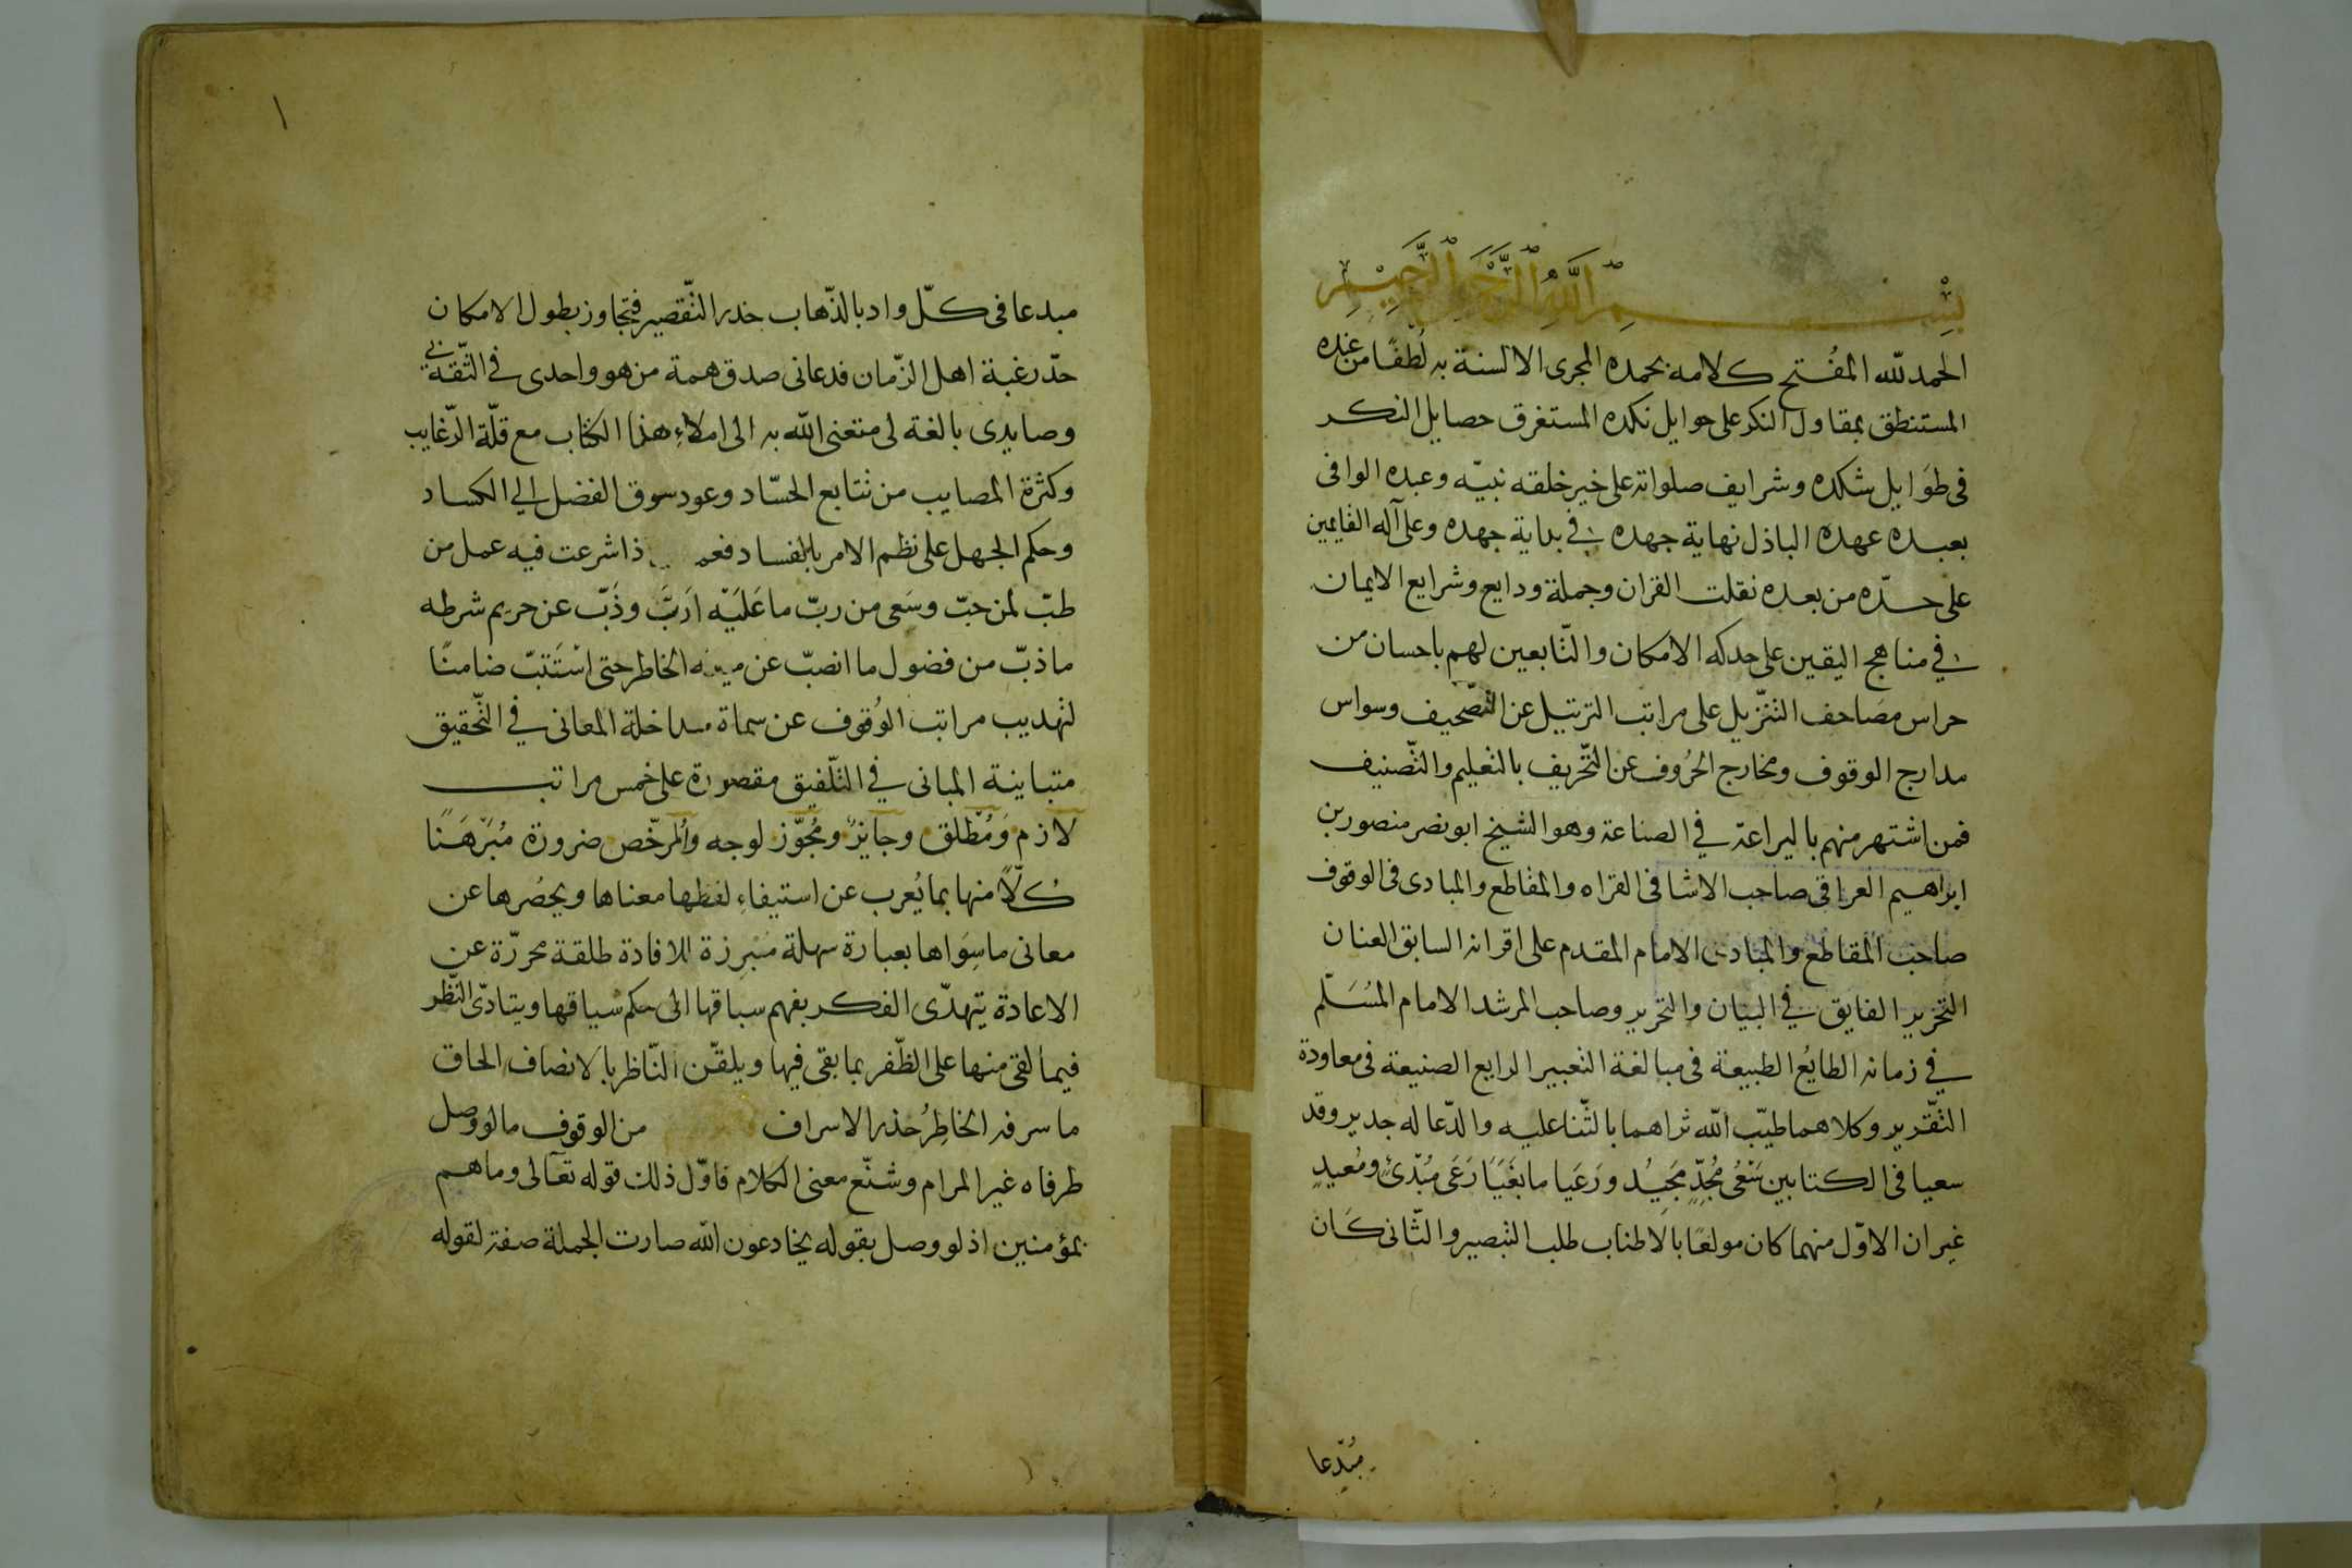 بِسْمِ اللَّهِ الرَّحْمَنِ الرَّحِيمِ
الحمد لله المفُتح كلامه بحمده المجرى الالسنة به لُطفًا من عنده
المستنطق بمقاول النكر على حوايل نكده المستغرق حصايل النكر
فى طوَايل شكده وشرايف صلواته على خير خلقه نبيّه وعبده الوافى
بعبده عهده الباذل نهاية جهده فى بداية جهده وعلى آله القايمين
على حدّه من بعده نقلت القران وجملة ودايع وشرايع الايمان
فى مناهج اليقين على حدكه الامكان والتّابعين لهم باحسان من
حراس مصَاحف التنزيل على مراتب الترتيل عن التصّحيف وسواس
مدارج الوقوف ومخارج الحرُوف عن التّحريف بالتعليم والتّصنيف
فمن اشتهر منهم بالبراعة في الصناعة وهو الشيخ ابو نصر منصور بن
ابراهيم العراقى صاحب الاشا فى القراه والمقاطع والمبادى فى الوقوف
صاحب المقاطع والمبادى الامام المقدم على اقرانه السابق العنان
التحرير الفايق في البيان والتحرير وصاحب المرشد الامام المسُلّم
في زمانه الطايُع الطبيعة فى مبالغة التعبير الرايع الصنيعة فى معاودة
التّقرير وكلاهما طيّب الله ثراهما بالثّنا عليه والدّعا له جدير وقد
سعيا فى الكتابين سَعْىُ مُجُدٍّ مجَيُد ورَعَيا ما بغَيَا رَعَى مُبُدّئ ومُعيدٍ
غير ان الاوّل منهما كان مولعًا بالاطناب طلب التبصير والثّانى كَان
مُبدّعا
١
مبدعا فى كلّ واد بالذّهاب حذر التّقصير فتجاوز بطول الامكان
حدّ رغبة اهل الزّمان فدعانى صدق همة من هو واحدى في الثّقة بى
وصايدى بالغة لى متعنى الله به الى املاءِ هذا الكتاب مع قلّة الرّغايب
وكثرة المصايب من تتابع الحسّاد وعود سوق الفضل الى الكساد
وحكم الجهل على نظم الامر بالفساد فعم ذا شرعت فيه عمل من
طبّ لمن حبّ وسَعى من ربّ ما عَلَيّه اَربَّ وذَبّ عن حريم شرطه
ما ذبّ من فضول ما انصبّ عن الخاطر حتى اسْتَتبّ ضامنًا
لتهديب مراتب الوُقوف عن سماة مداخلة المعانى في التّحقيق
متباينة المبانى في التّلفيق مقصورة على خمس مراتب
لازم وَمُطْلق وجَايزً ومجُوّز لوجه والمرخّص ضرورة مُبَرْهَنًا
كُلّاً منها بما يُعرب عن استيفاءِ لفظها معناها ويحصُرها عن
معانى ما سِوَاها بعبارة سهلة مَبْرِزة للافادة طلقة محررّة عن
الاعادة يتهدّى الفكر بفهم سباقها الى حكم سياقها ويتادّى النّظر
فيما لقى منها على الظّفر بما بقى فيها ويلقّن النّاظر بالانصاف الحاق
ما سرفه الخاطِرُ حذر الاسراف من الوقوف ما لو وصل
طرفاه غير المرام وشنّع معنى الكلام فاوّل ذلك قوله تعَالى وما هم
بمؤمنين اذ لو وصل بقوله يخادعون الله صارت الجملة صفة لقوله